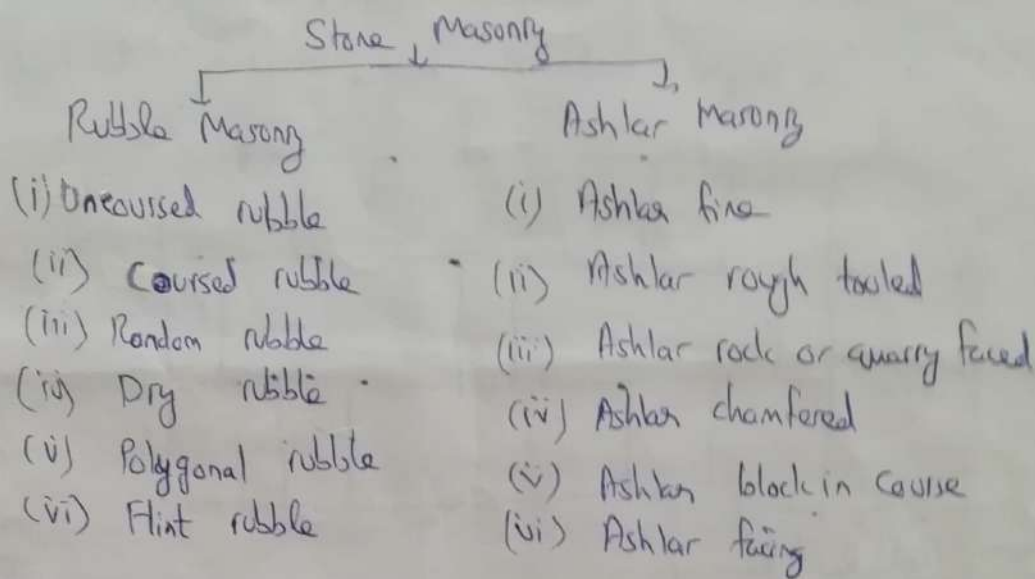 Stone Masonry
Rubble Masonry
Ashlar Masonry
(i) Uncoursed rubble
(ii) Coursed rubble
(iii) Random rubble
(iv) Dry rubble
(v) Polygonal rubble
(vi) Flint rubble
(i) Ashlar fine
(ii) Ashlar rough tooled
(iii) Ashlar rock or quarry faced
(iv) Ashlar chamfered
(v) Ashlar block in course
(vi) Ashlar facing